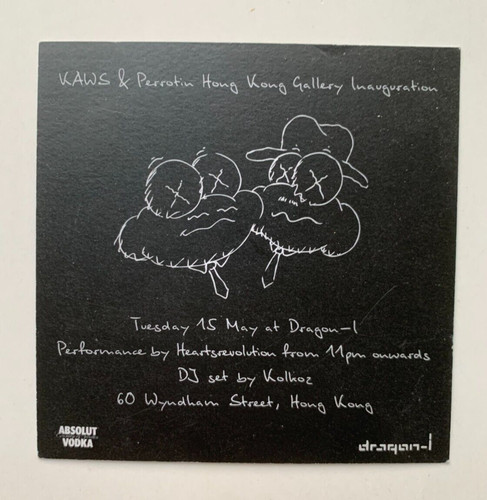 KAWS & Perrotin Hong Kong Gallery Inauguration
Tuesday 15 May at Dragon-I
Performance by Heartsrevolution from 11pm onwards
DJ set by Kolkoz
60 Wyndham Street, Hong Kong
ABSOLUT
VODKA
dragon-I